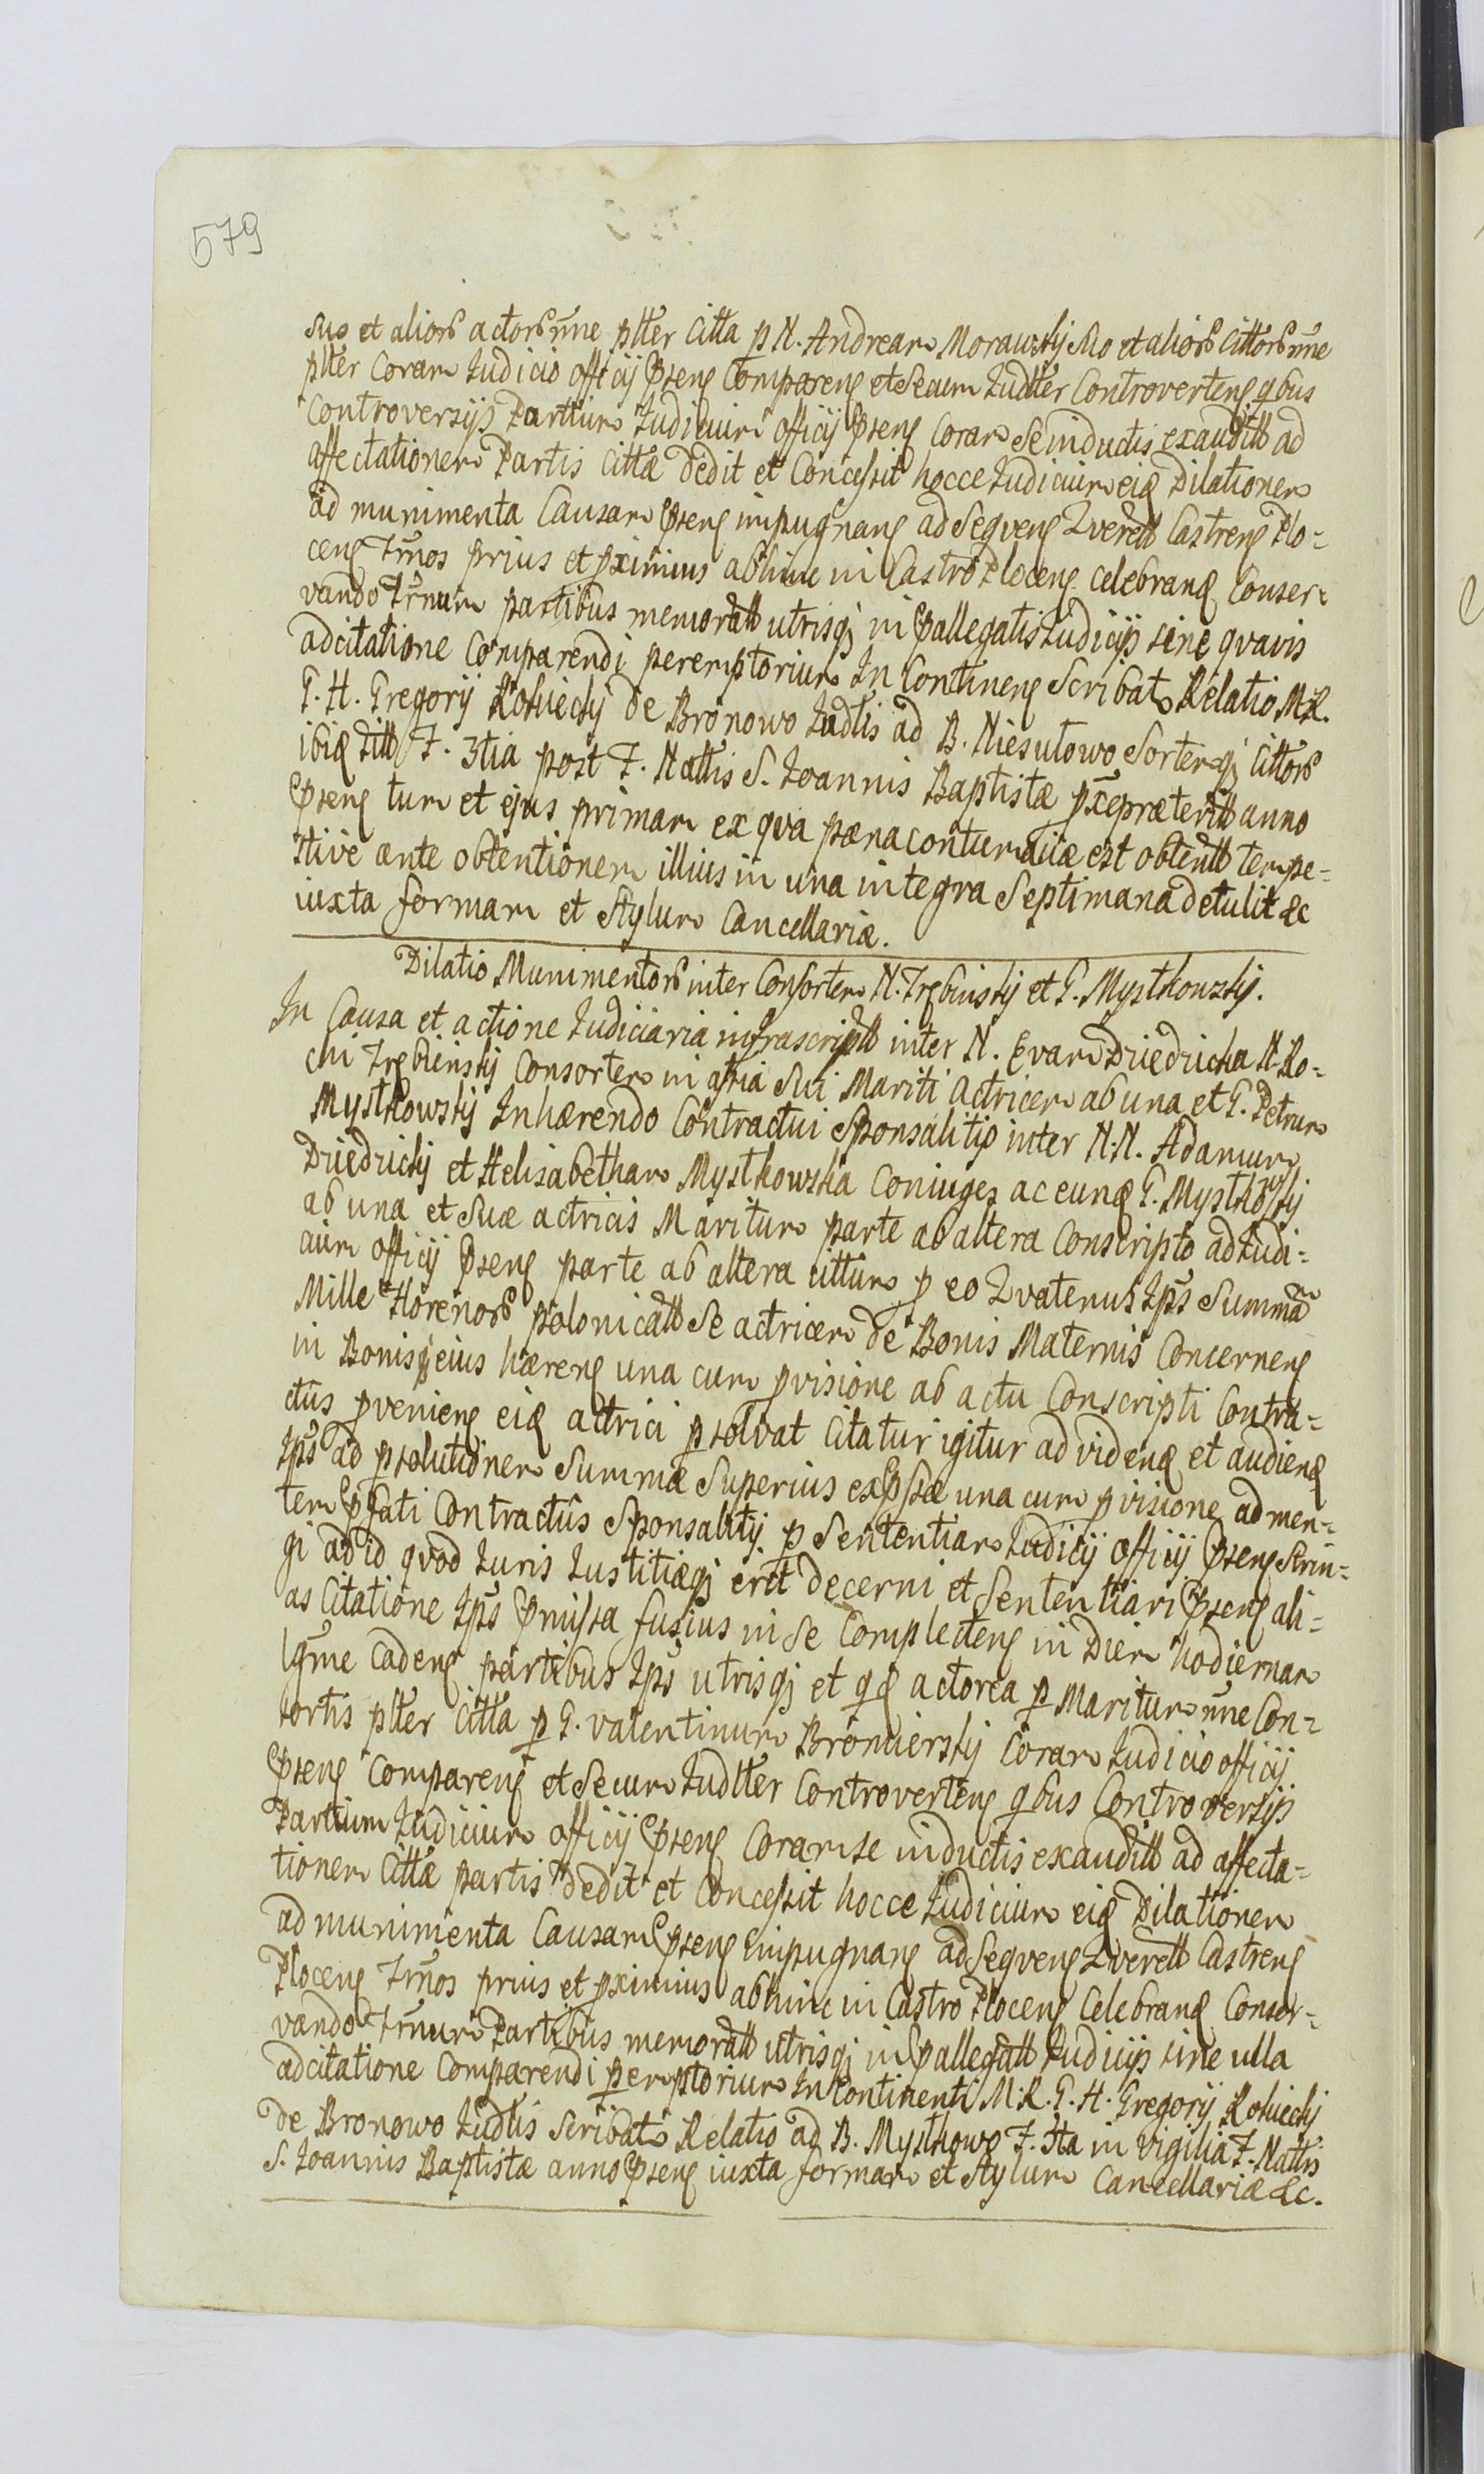 579
suo et aliorб actorб nne plter Citta p N. Andream Morawskij suo et aliorб Cittorб nne
plter Coram Judicio officij Psenς Comparenς et Secum Judlter Controvertenς qbus
Controversijs Partium Judicium officij Psenς Coram Se inductis exauditt ad
affectationem Partis Cittæ dedit et Concessit hocce Judicium eiς Dilationem
ad munimenta Causam Psenς impugnanς ad Seqvenς Qverett Castrenς Plo=
cenς Trmos prius et pximius abhinc in Castro Plocenς celebranς Conser=
vando Trnum partibus memoratt utrisqj in Pallegatis Judicijs sine qvavis
adcitatione Comparendi peremptorium In Continenς Scribat Relatio M.R.
G. H. Gregorij Rokiecký de Bronowo Judlis ad B. Niesułowo Sortemqj Cittorб
ibiς Titt F. 3tia post F. Nattis S. Joannis Baptistæ pxepræteritt anno
Psenς tum et ejus primam ex qva pæna contumaciæ est obtentt tempe=
stive ante obtentionem illius in una integra Septimana detulit &c
iuxta formam et Stylum Cancellariæ.
Dilatio Munimentorб inter Consortem N. Trębinskij et G. Mystkowskij.
In Causa et actione Judiciaria infrascriptt inter N. Evam Driedzicka N. Ro=
chi Trębienskij Consortem in astia Sui Mariti Actricem ab una et G. Petrum
Mystkowskij Inhærendo Contractui Sponsalitio inter N.N. Adamum
Driedzickij et Helisabetham Mystkowska Coniuges ac eunς G. Mystkowskij
ab una et Suæ actricis Maritum parte ab altera Conscripto ad Judi=
cium officij Psenς parte ab altera cittum p eo Qvatenus Ips Summam
Mille Florenorб polonicatt Se actricem de Bonis Maternis Concernenς
in Bonis eius hærenς una cum pvisione ab actu Conscripti Contra=
ctus pvenienς eiς actrici psolvat Citatur igitur ad videnς et audienς
Ips ad psolutionem Summæ Superius expssæ una cum pvisione ad men=
tem Pfati Contractûs Sponsalitij p Sententiam Judicij officij Psenς Strin=
gi ad id qvod Juris Justitiæqj erit decerni et Sententiari Psenς ali=
as Citatione Ips Pmissa fusius in Se Complectenς in Diem hodiernam
lgtme Cadenς partibus Ips utrisqj et qς actorea p Maritum nne Con=
sortis plter Citta p G. Valentinum Bromierskij Coram Judicio officij
Psenς Comparenς et Secum Judlter Controvertenς qbus Controversijs
Partium Judicium officij Psenς Coram se inductis exauditt ad affecta=
tionem Cittæ partis dedit et Concessit hocce Judicium eiς Dilationem
ad munimenta Causam Psenς Impugnanς ad Seqvenς Qverett Castrenς
Plocenς Trmos prius et pximius abhinc in Castro Plocenς Celebranς Conser=
vando Trnum Partibus memoratt utrisqj in Pallegatt Judicijs sine ulla
adcitatione Comparendi peremptorium In Continenti M.R. G. H. Gregorij Rokieckij
de Bronowo Judlis Scribat Relatio ad B. Mystkowo F. 5ta in vigilia F. Nattis
S. Joannis Baptistæ anno Psenς iuxta formam et Stylum Cancellariæ &c.